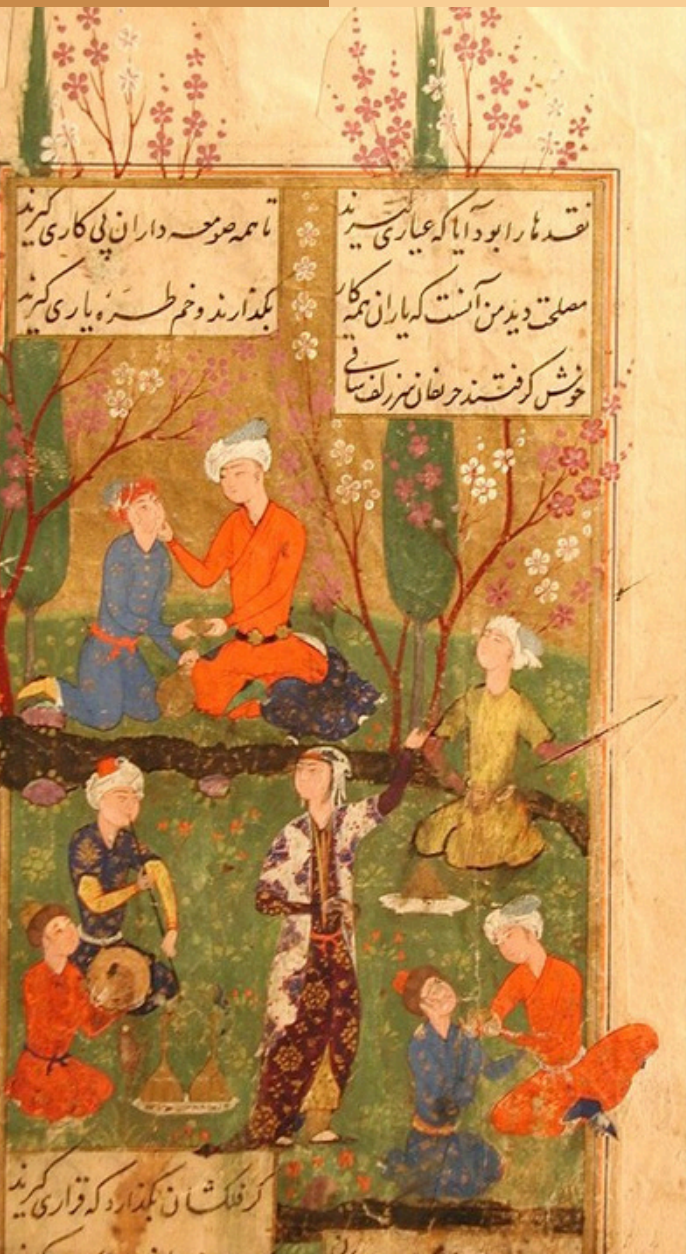 نقدها را بود آیا که عیاری گیرند
تا همه صومعه داران پی کاری گیرند
مصلحت دید من آنست که یاران همه کار
بگذارند و خم طره یاری گیرند
خوش گرفتند حریفان سر زلف ساقی
گر فلکشان بگذارد که قراری گیرند